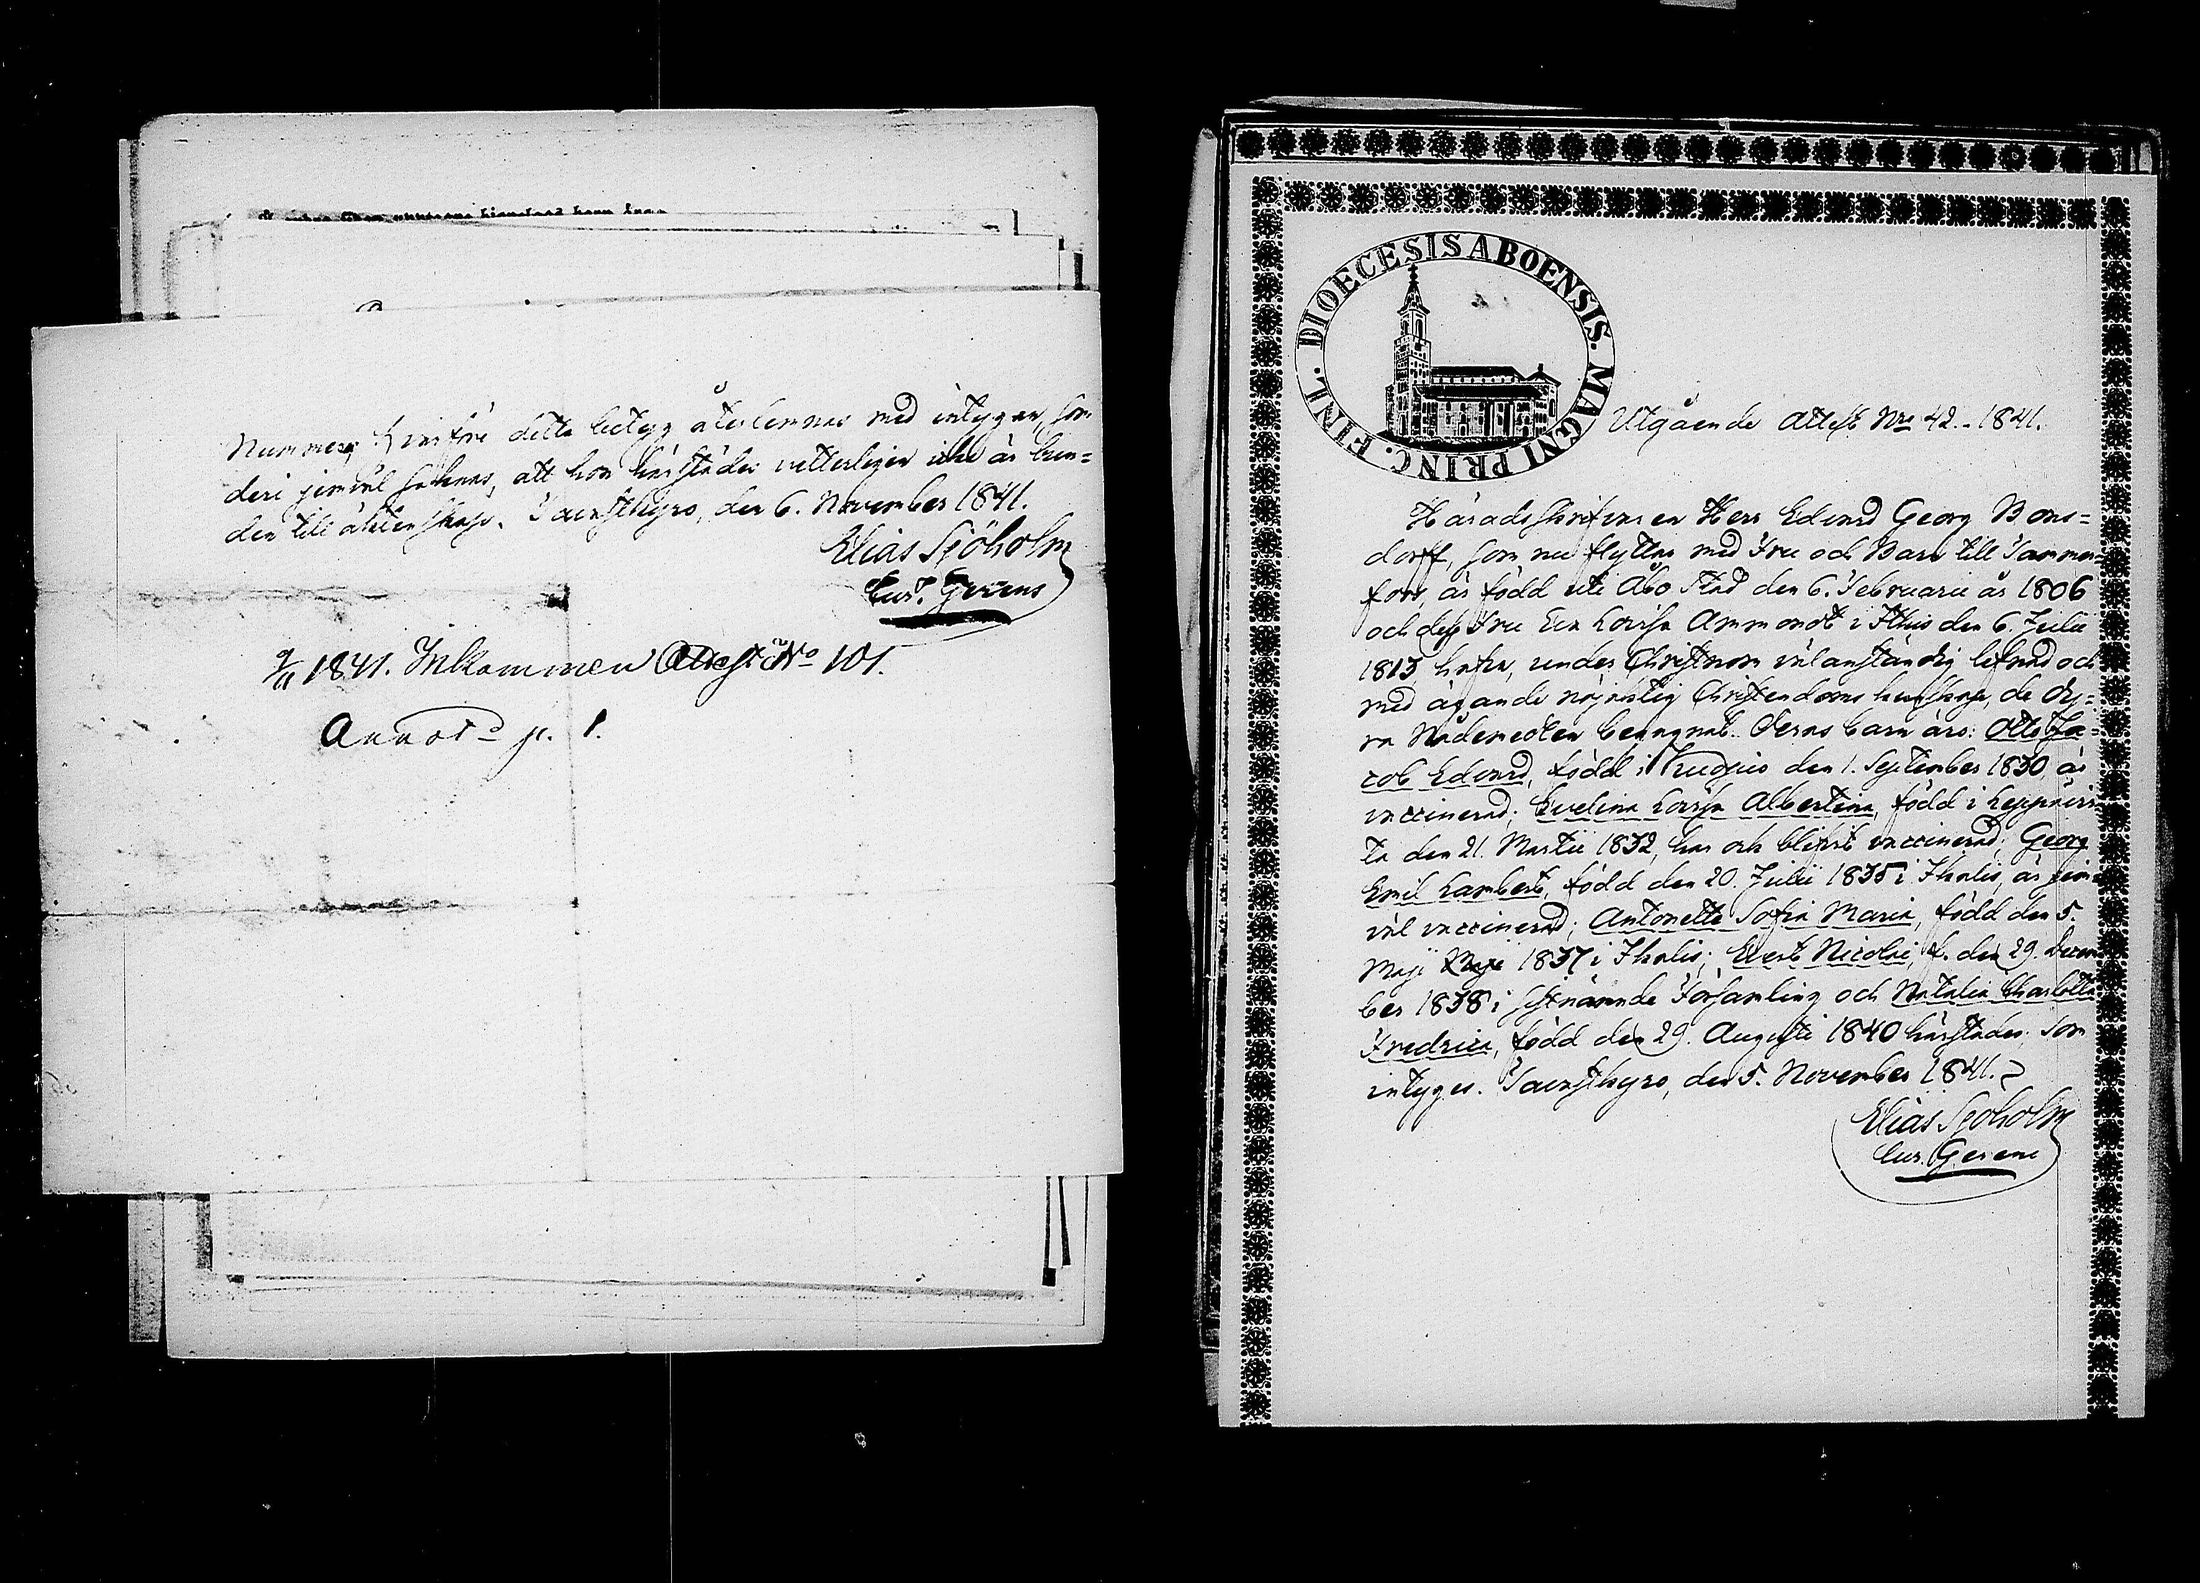 Nummer, hvarföre detta betyg återlemnas med intygan, som
deri jemväl sökenes, att hon härstädes vetterligen icke är bun=
den till äktenskap. Tavastkyro, den 6. November 1841.
Elias Sjöholm
Cur. Gerens
9/11 1841. Inkommen Attest No 101.
Annotd p. 1.
DIOECESIS ABOENSIS. MAGNI PRINC. FINL.
Utgående Attest Nro 42. 1841.
Häradsskrifvaren Herr Edvard Georg Bons=
dorff, som nu flyttar med Fru och Barn till Tammer=
fors, är född uti Åbo Stad den 6. Februarii år 1806
och dess Fru Eva Lovisa Ammondt i Ithis den 6. Julii
1813, hafva, under Christnom välanständig lefnad och
med ägande nöjaktig Christendoms kunskap, de dy=
ra Nådemedlen begagnat. Deras barn äro: Otto Ja=
cob Edvard, född i Kuopio den 1. September 1830, är
vaccinerad; Evelina Lovisa Albertina, född i Leppävir=
ta den 21. Martii 1832, har ock blifvit vaccinerad; Georg
Emil Lambert, född den 20. Julii 1835 i Ikalis, är jem=
väl vaccinerad; Antonette Sofia Maria, född den 5.
Maji Maji 1837 i Ikalis; Evert Nicolai, f. den 29. Decem
ber 1838 i sistnämnde Församling och Natalia Charlotta
Fredrica, född den 29. Augusti 1840 härstädes; som
intyges. Tavastkyro, den 5. November 1841.
Elias Sjöholm
Cur. Gerens